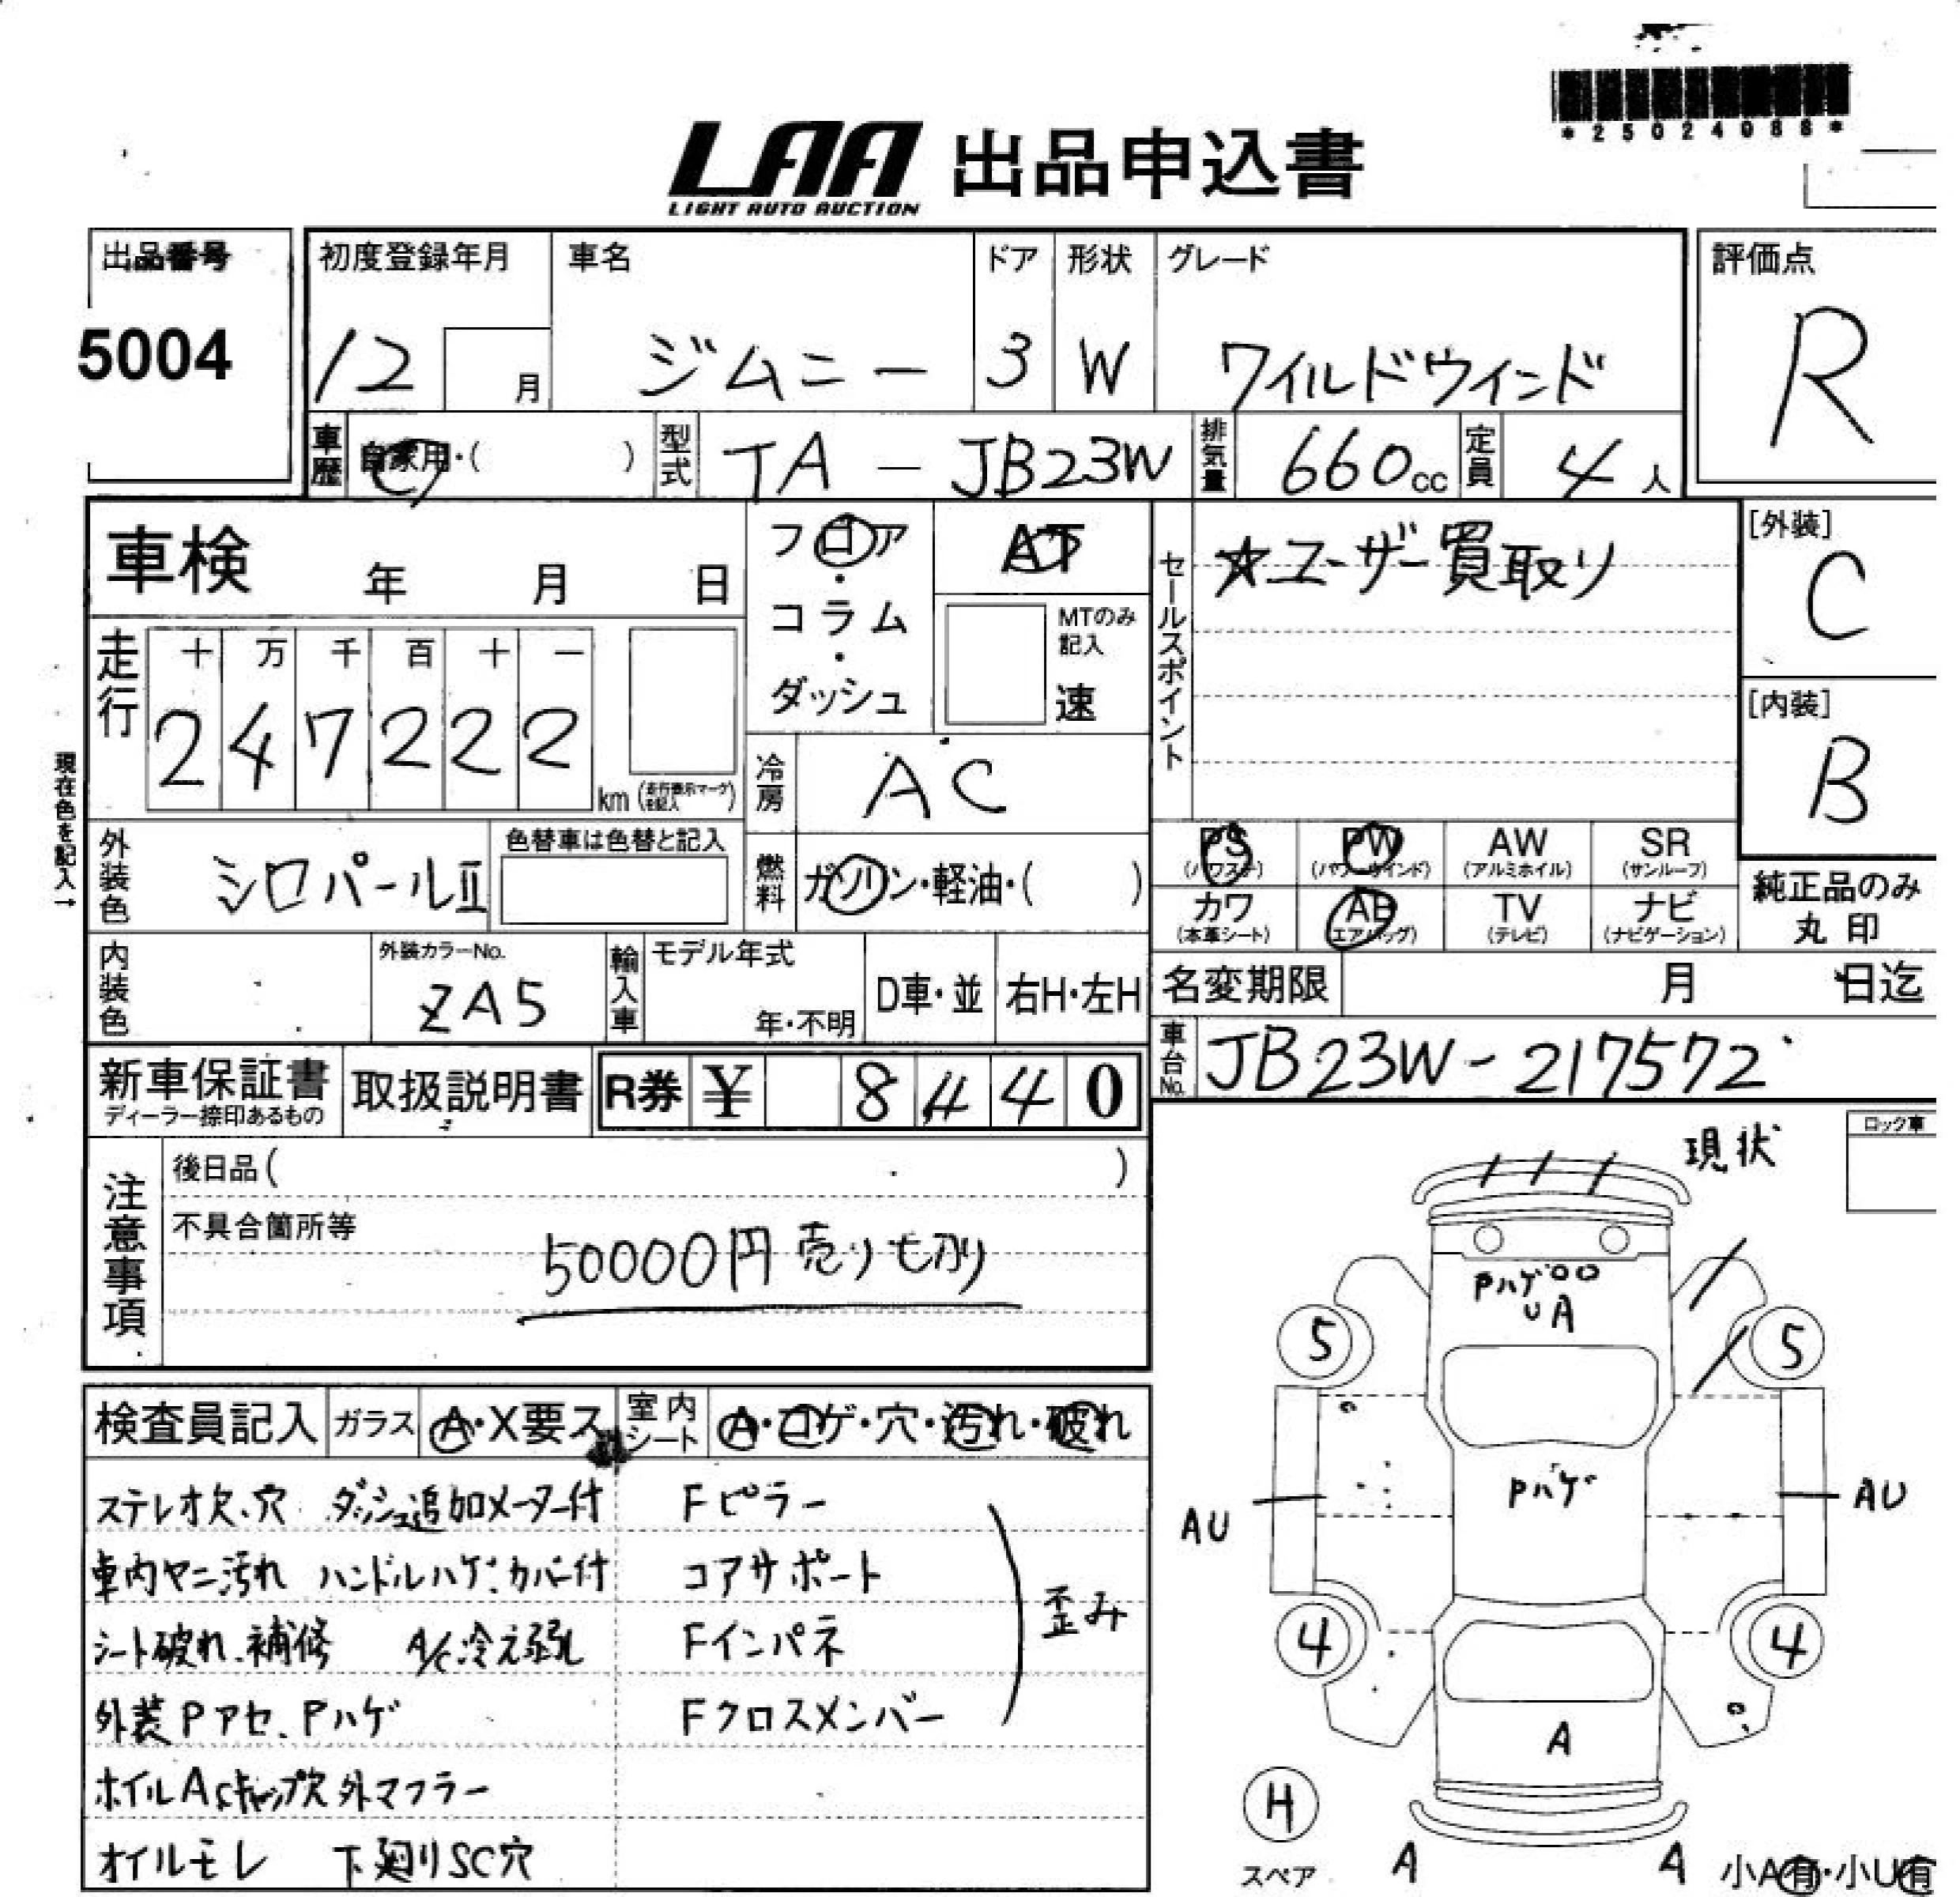 *25024088*
LAA 出品申込書
LIGHT AUTO AUCTION
出品番号
5004
初度登録年月
12 月
車名
ジムニー
ドア
3
形状
W
グレード
ワイルドウインド
評価点
R
車歴
自家用・( )
型式
TA - JB23W
排気量
660cc
定員
4人
車検 年 月 日
フロア・コラム・ダッシュ
AT
MTのみ記入
速
セールスポイント
☆ユーザー買取り
[外装]
C
[内装]
B
走行
十 万 千 百 十 一
2 4 7 2 2 2
km (走行表示マークを記入)
冷房
AC
現在色を記入→
外装色
シロパールⅡ
色替車は色替と記入
燃料
ガソリン・軽油・( )
PS (パワステ)
PW (パワーウインド)
AW (アルミホイル)
SR (サンルーフ)
カワ (本革シート)
AB (エアバッグ)
TV (テレビ)
ナビ (ナビゲーション)
純正品のみ
丸印
内装色
外装カラーNo.
ZA5
輸入車
モデル年式
年・不明
D車・並
右H・左H
名変期限 月 日迄
車台No.
JB23W-217572
新車保証書
ディーラー捺印あるもの
取扱説明書
R券 ¥ 8440
注意事項
後日品( )
不具合箇所等
50000円売り切り
現状
ロック車
Pハゲ
U A
5
5
Pハゲ
AU
AU
4
4
A
H
スペア
A
A
小A有・小U有
検査員記入
ガラス
A・X要ス
室内シート
A・コゲ・穴・汚れ・破れ
ステレオ欠、穴 ダッシュ追加メーター付
Fピラー
車内ヤニ汚れ ハンドルハゲ、カバー付
コアサポート
歪み
シート破れ、補修 A/C冷え弱し
Fインパネ
外装Pアセ、Pハゲ
Fクロスメンバー
ホイルASキャップ欠 外マフラー
オイルモレ 下廻りSC穴